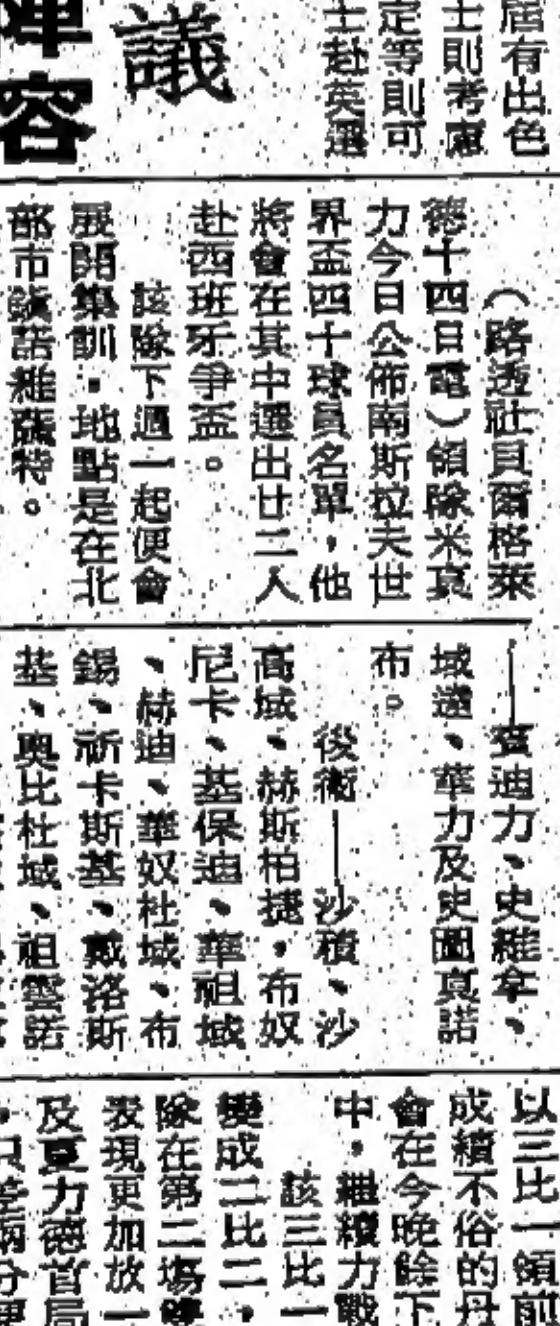 屆有出色
士則考慮
定等則可
士赴英選
議
陣容
（路透社貝爾格萊
德十四日電）領隊米真
力今日公佈南斯拉夫世
界盃四十球員名單，他
將會在其中選出廿二人
赴西班牙爭盃。
該隊下週一起便會
展開集訓，地點是在北
部市鎮諾維薩特。
——查迪力、史維拿、
域遜、華力及史圖真諾
布。
後衛——沙積、沙
高域、赫斯柏捷，布奴
尼卡、基保迪、華祖域
、赫迪、華奴杜域、布
錫、祈卡斯基、戴洛斯
基、奧比杜域、祖雲諾
以三比一領前
成績不俗的丹
會在今晚餘下
中，繼續力戰
該三比一
變成二比二，
隊在第二場
表現更加放一
及夏力德首局
，只差兩分便